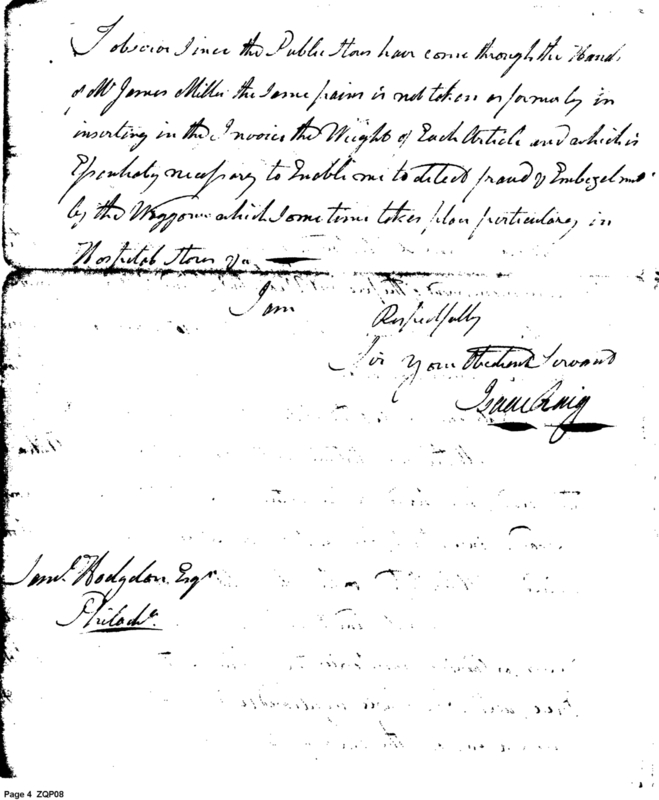 I observe since the Public Stores have come through the Hands
of Mr James Miller the same pains is not taken as formerly in
inserting in the Invoices the Weight of Each Article and which is
Essentialy necessary to Enable me to detect fraud & Embezelment
by the Waggoners which some times takes place particularly in
Hospital Stores &c
I am
Respectfully
Sir your Obedient Servant
Isaac Craig
Saml. Hodgdon Esqr
Philada.
Page 4 ZQP08